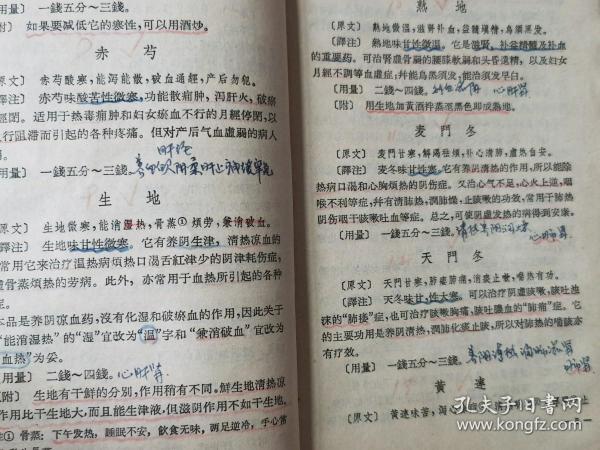 〔用量〕 一錢五分~三錢。
〔附〕 如果要减低它的寒性，可以用酒炒。
赤 芍
〔原文〕 赤芍酸寒，能泻能散，破血通經，产后勿犯。
〔譯注〕 赤芍味酸苦性微寒，功能散瘀肿，泻肝火，破瘀
經閉。适用于热毒瘀肿和妇女瘀血不行的月經停閉，以
行阻滞而引起的各种疼痛。但对产后气血虛弱的病人
〔用量〕 一錢五分~三錢。
生 地
〔原文〕 生地微寒，能消湿热，骨蒸① 煩劳，兼消破血。
〔譯注〕 生地味甘性微寒。它有养阴生津，清热凉血的
常用它来治疗温热病煩热口渴舌紅津少的阴津耗伤症，
虛骨蒸煩热的劳病。此外，亦常用于血热所引起的各种
症。
本品是养阴凉血药，沒有化湿和破瘀血的作用，因此关于
“能消湿热”的“湿”宜改为“温”字和“兼消破血”宜改为
血热”为妥。
〔用量〕 二錢~四錢。心肝肾
〔附〕 生地有干鮮的分別，作用稍有不同。鮮生地清热凉
作用比干生地大，而且能生津液，但滋阴作用不如干生地。
注① 骨蒸：下午发热，睡眠不安，飲食无味，兩足逆冷，手心常
熟 地
〔原文〕 熟地微温，滋腎补血，益髓填精，烏鬚黑发。
〔譯注〕 熟地味甘性微温。它是滋腎、补益精髓及补血
的重要药。可治腎虛骨弱的腰膝軟弱和头昏遺精，以及妇女
月經不調等血虛症，并能烏黑須发，能治須发早白。
〔附〕 用生地加黃酒拌蒸至黑色即成熟地。
麦 門 冬
〔原文〕 麦門甘寒，解渴祛煩，补心清肺，虛热自安。
〔譯注〕 麦冬味甘性寒。它有养阴清热的作用，所以能除
热病口渴和心胸煩热的阴伤症。又治心气不足，心火上逆，咽
喉不利等症，并有清肺热，潤肺燥，止咳嗽的功效，常用于肺热
阴伤咽干咳嗽吐血等症。总之，可使阴虛发热的病得到安康。
〔用量〕 一錢五分~三錢。
天 門 冬
〔原文〕 天門甘寒，肺痿肺癰，消痰止嗽，喘热有功。
〔譯注〕 天冬味甘，性大寒。可以治疗阴虛咳嗽，咳吐浊
沫的“肺痿”症，也可治疗咳嗽胸痛，咳吐膿血的“肺癰”症。它
的主要功用是养阴清热，潤肺化痰止咳，所以对肺热的喘咳亦
有疗效。
〔用量〕 一錢五分~三錢。
黃 連
〔原文〕 黃連味苦，瀉心
孔夫子旧书网